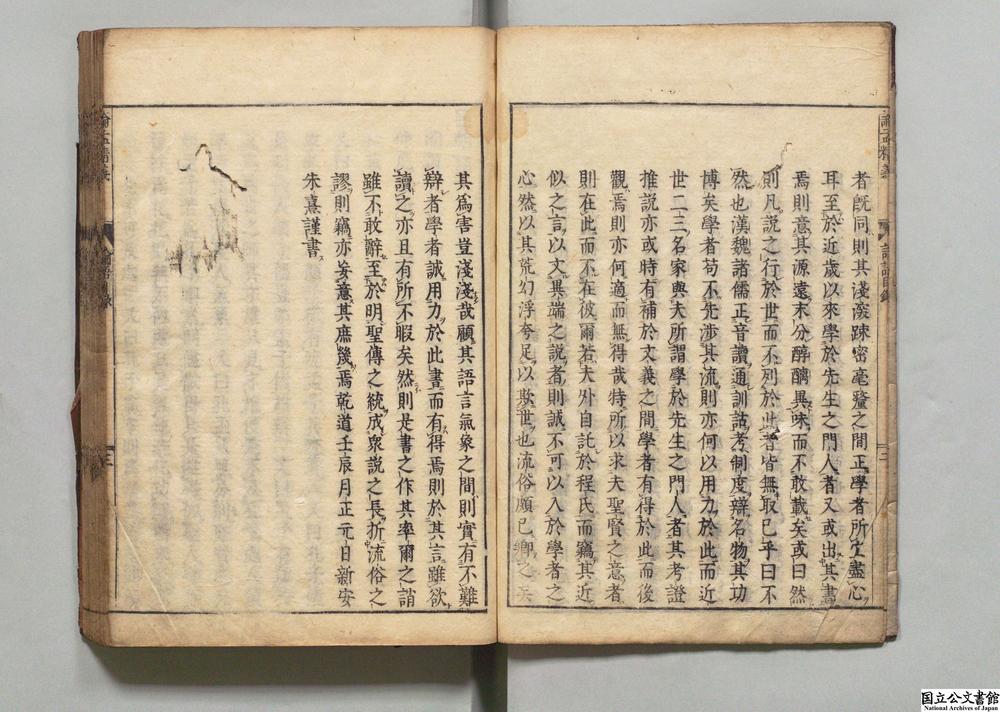 者旣同則其淺深踈密毫釐之間正學者所宜盡心
耳至於近歲以來學於先生之門人者又或出其書
焉則意其源遠末分醇醨異味而不敢載矣或曰然
則凡說之行於世而不列於此者皆無取已乎曰不
然也漢魏諸儒正音讀通訓詁考制度辯名物其功
博矣學者苟不先涉其流則亦何以用力於此而近
世二三名家與夫所謂學於先生之門人者其考證
推說亦或時有補於文義之間學者有得於此而後
觀焉則亦何適而無得哉特所以求夫聖賢之意者
則在此而不在彼爾若夫外自託於程氏而竊其近
似之言以文異端之說者則誠不可以入於學者之
心然以其荒幻浮夸足以欺世也流俗頗已鄉之矣
其爲害豈淺淺哉顧其語言氣象之間則實有不難
辯者學者誠用力於此書而有得焉則於其言雖欲
讀之亦且有所不暇矣然則是書之作其率爾之誚
雖不敢辭至於明聖傳之統成衆說之長折流俗之
謬則竊亦妄意其庶幾焉乾道壬辰月正元日新安
朱熹謹書
論孟精義
國立公文書館
National Archives of Japan